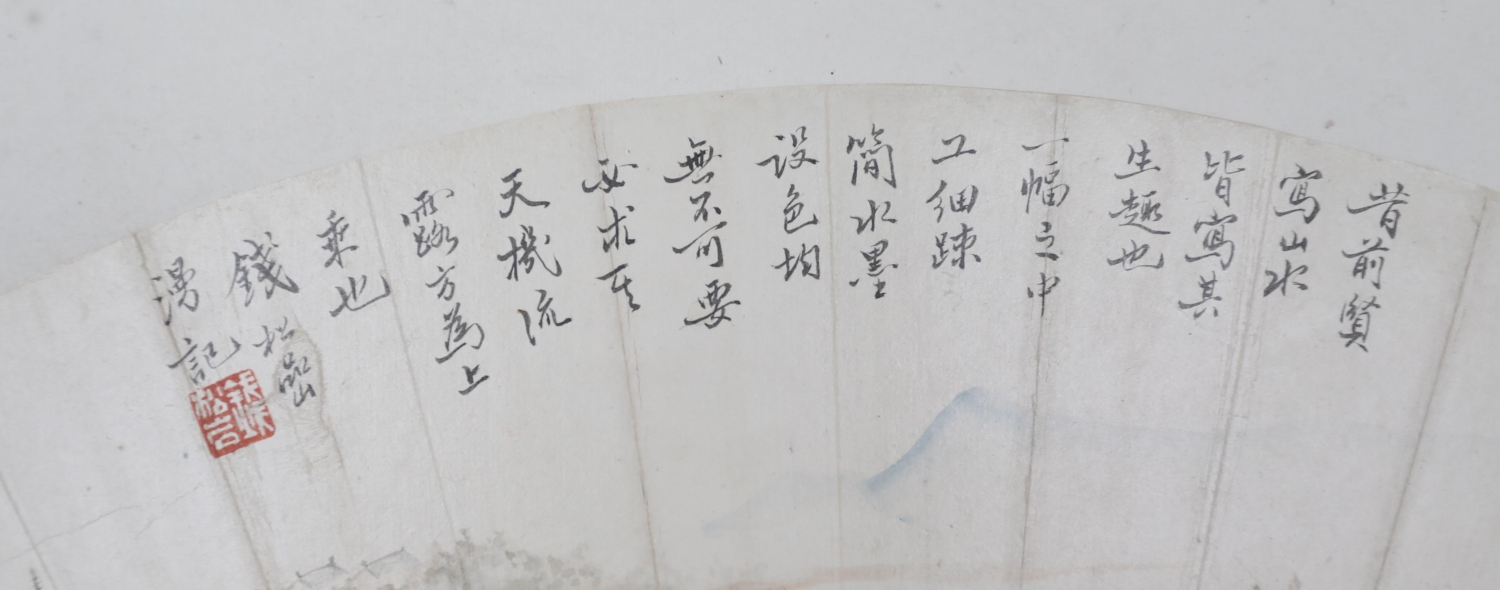 昔前賢
寫山水
皆寫其
生趣也
一幅之中
工細踈
簡水墨
設色均
無不可要
必求其
天機流
露方為上
乘也
錢松嵒
漫記
錢松嵒